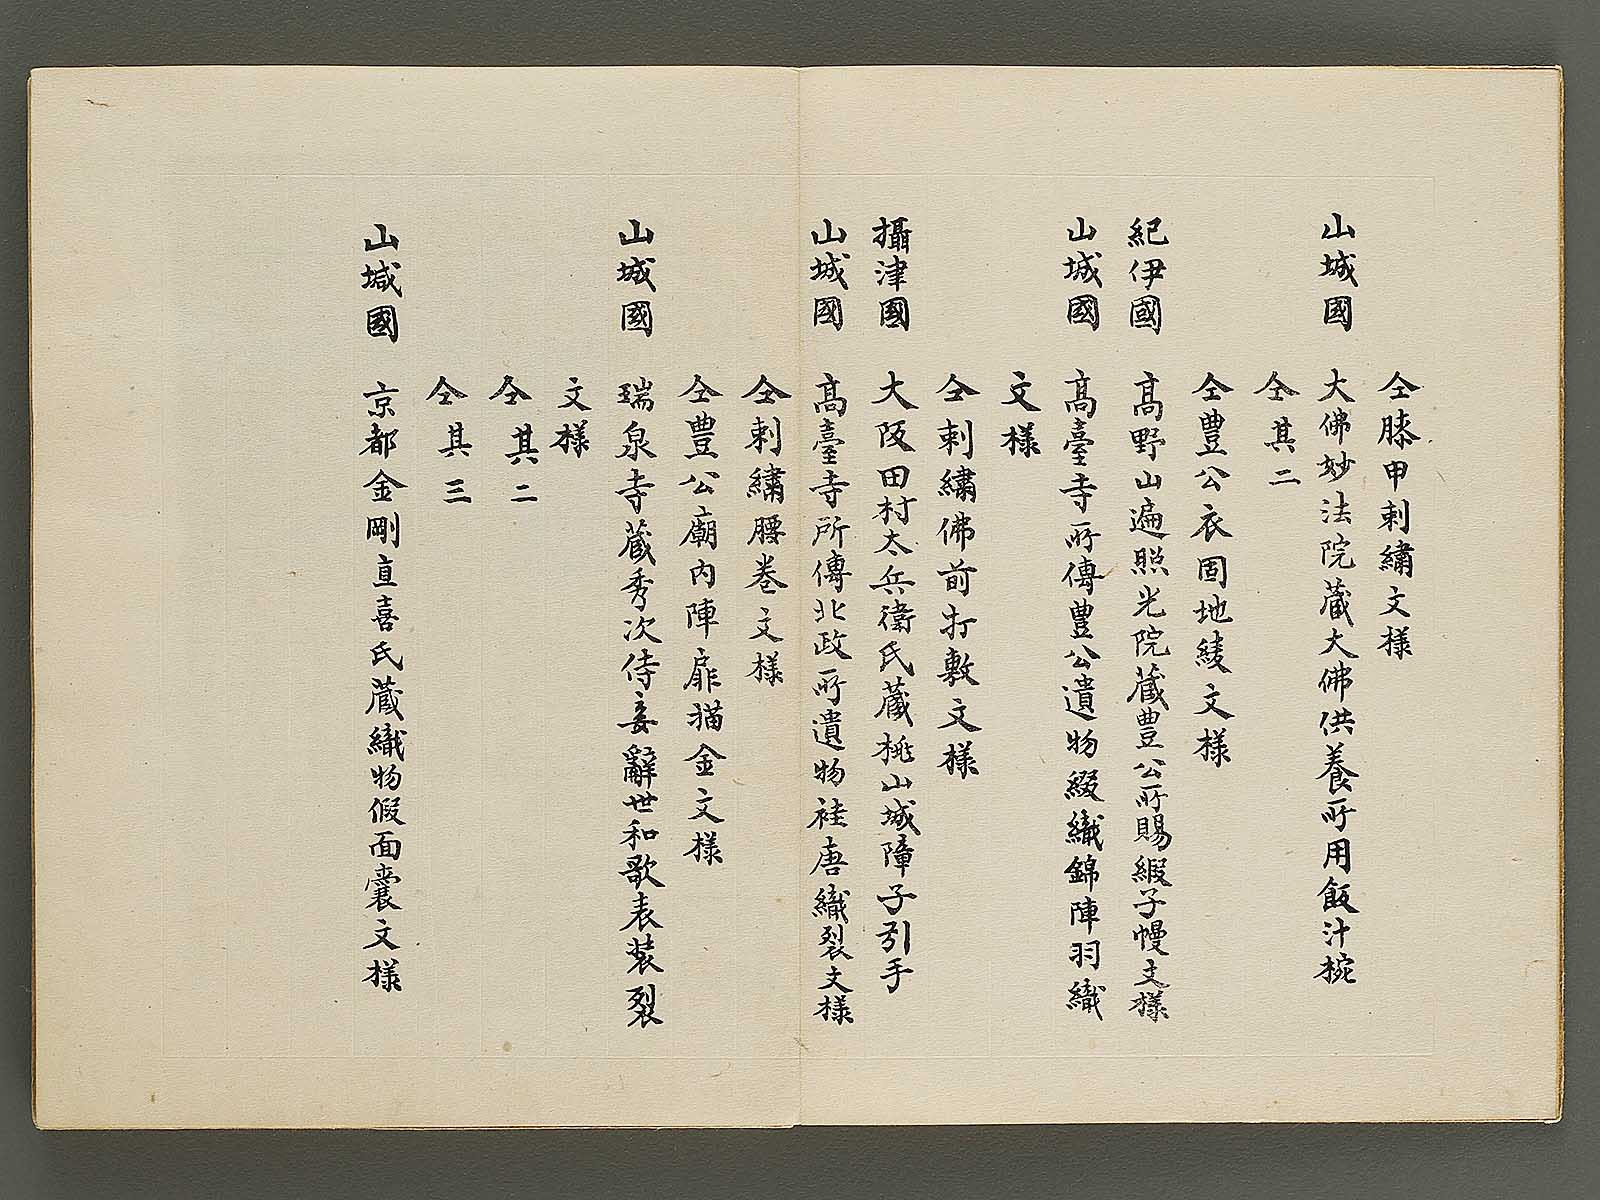 仝膝甲刺繡文様
山城國 大佛妙法院蔵大佛供養所用飯汁椀
仝其二
仝豊公衣固地綾文様
紀伊國 高野山遍照光院蔵豊公所賜緞子幔文様
山城國 高臺寺所傳豊公遺物綴織錦陣羽織
文様
仝刺繡佛前打敷文様
攝津國 大阪田村太兵衛氏蔵桃山城障子引手
山城國 高臺寺所傳北政所遺物袿唐織裂文様
仝刺繡腰巻文様
仝豊公廟内陣扉描金文様
山城國 瑞泉寺蔵秀次侍妾辭世和歌表装裂
文様
仝其二
仝其三
山城國 京都金剛直喜氏蔵織物假面囊文様